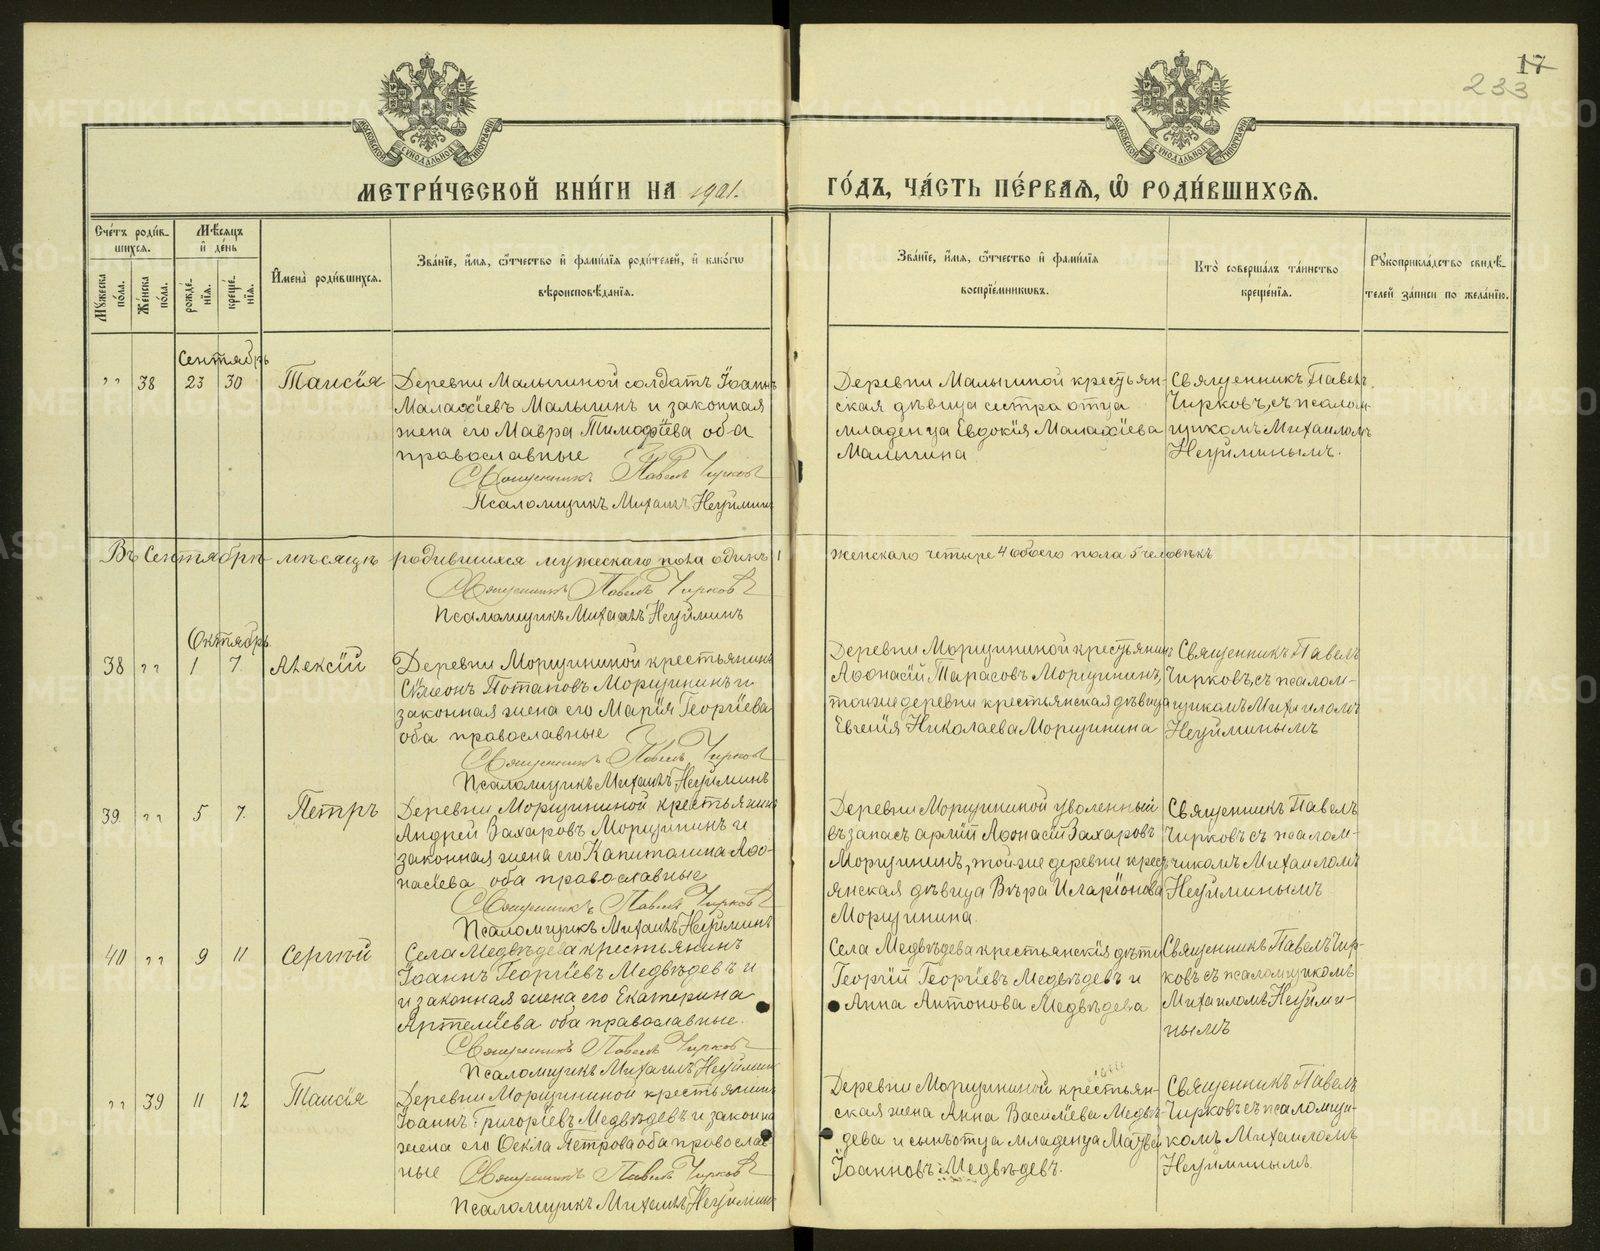 17
233
МОСКОВСКОЙ СѴНОДАЛЬНОЙ ТИПОГРАФІИ
МОСКОВСКОЙ СѴНОДАЛЬНОЙ ТИПОГРАФІИ
МЕТРИ́ЧЕСКОЙ КНИ́ГИ НА 1901. ГО́ДЪ, ЧА́СТЬ ПЕ́РВАѦ, Ѿ РОДИ́ВШИХСѦ.
Сче́тъ роди́в-
шихсѧ.
Мѣ́сѧцъ
и҆ де́нь
Мꙋжеска по́ла.
Же́нска по́ла.
рожде́-
нїѧ.
креще́-
нїѧ.
И҆мена̀ роди́вшихсѧ.
Зва́нїе, и҆́мѧ, ѻ҆́тчество и҆ фами́лїѧ роди́телей, и҆ како́гѡ
вѣроисповѣ́данїѧ.
Зва́нїе, и҆́мѧ, ѻ҆́тчество и҆ фами́лїѧ
воспрїе́мникѡвъ.
Кто̀ соверша́лъ та́инство
креще́нїѧ.
Рꙋкоприкла́дство свидѣ́-
телей за́писи по жела́нїю.
Сентябрь
" 38 23 30 Таисія
Деревни Малыгиной солдатъ Іоаннъ
Малахіевъ Малыгинъ и законная
жена его Мавра Тимофіева оба
православные
Священникъ Павелъ Чирковъ
Псаломщикъ Михаилъ Неуйминъ
Деревни Малыгиной крестьян-
ская дѣвица сестра отца
младенца Евдокія Малахіева
Малыгина
Священникъ Павелъ
Чирковъ, съ псалом-
щикомъ Михаиломъ
Неуйминымъ.
Въ Сентябрѣ мѣсяцѣ родившихся мужескаго пола одинъ 1 женскаго четыре 4 обоего пола 5 человѣкъ
Священникъ Павелъ Чирковъ
Псаломщикъ Михаилъ Неуйминъ
Октябрь
38 " 1 7. Алексій
Деревни Морщининой крестьянинъ
Сѵмеонъ Потаповъ Морщининъ и
законная жена его Марія Георгіева
оба православные
Священникъ Павелъ Чирковъ
Псаломщикъ Михаилъ Неуйминъ
Деревни Морщининой крестьянинъ
Аѳонасій Тарасовъ Морщининъ,
той же деревни крестьянская дѣвица
Евгенія Николаева Морщинина
Священникъ Павелъ
Чирковъ, съ псалом-
щикомъ Михаиломъ
Неуйминымъ
39. " 5 7. Петръ
Деревни Морщининой крестьянинъ
Андрей Захаровъ Морщининъ и
законная жена его Капиталина Аѳо-
насіева оба православные
Священникъ Павелъ Чирковъ
Псаломщикъ Михаилъ Неуйминъ
Деревни Морщининой уволенный
въ запасъ арміи Аѳонасій Захаровъ
Морщининъ, той же деревни крест-
янская дѣвица Вѣра Иларіонова
Морщинина.
Священникъ Павелъ
Чирковъ съ псалом-
чикомъ Михаиломъ
Неуйминымъ
40 " 9 11 Сергѣй
Села Медвѣдева крестьянинъ
Іоаннъ Георгіевъ Медвѣдевъ и
и законная жена его Екатерина
Артеміева оба православные.
Священникъ Павелъ Чирковъ
Псаломщикъ Михаилъ Неуйминъ
Села Медвѣдева крестьянскія дѣти
Георгій Георгіевъ Медвѣдевъ и
Анна Антонова Медвѣдева
Священникъ Павелъ Чир-
ковъ съ псаломщикомъ
Михаиломъ Неуйми-
нымъ
" 39 11 12 Таисія
Деревни Морщининой крестьянинъ
Іоаннъ Григоріевъ Медвѣдевъ и законна
жена его Ѳекла Петрова оба православ
ные
Священникъ Павелъ Чирковъ
Псаломщикъ Михаилъ Неуйминъ
Деревни Морщининой крестьян-
ская жена Анна Василіева Медвѣ-
дева и сынъ отца младенца Матвей
Іоанновъ Медвѣдевъ.
Священникъ Павелъ
Чирковъ съ псаломщи-
комъ Михаиломъ
Неуйминымъ.
METRIKI.GASO-URAL.RU